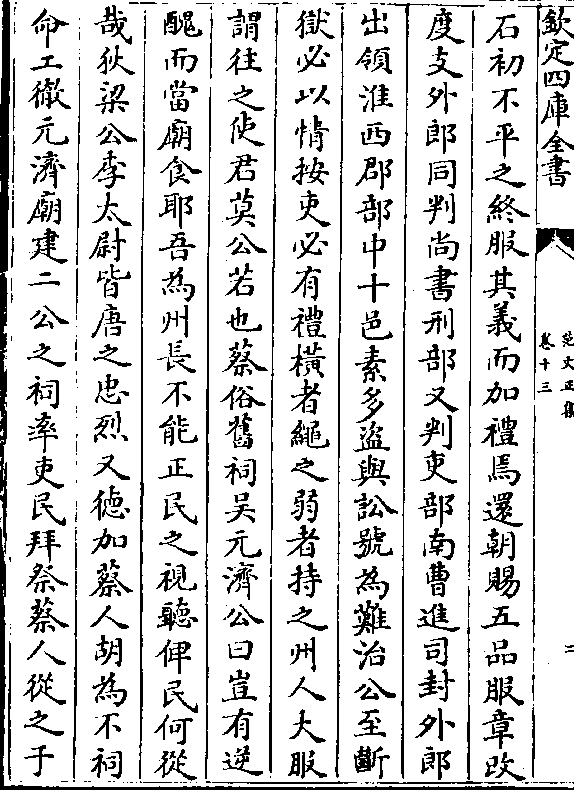 欽定四庫全書
范文正集
卷十三
二
石初不平之終服其義而加禮焉還朝賜五品服章改
度支外郎同判尚書刑部又判吏部南曹進司封外郎
出領淮西郡部中十邑素多盜與訟號為難治公至斷
獄必以情按吏必有禮橫者繩之弱者持之州人大服
謂往之使君莫公若也蔡俗舊祠吳元濟公曰豈有逆
醜而當廟食耶吾為州長不能正民之視聽俾民何從
哉狄梁公李太尉皆唐之忠烈又德加蔡人胡為不祠
命工徹元濟廟建二公之祠率吏民拜祭蔡人從之于